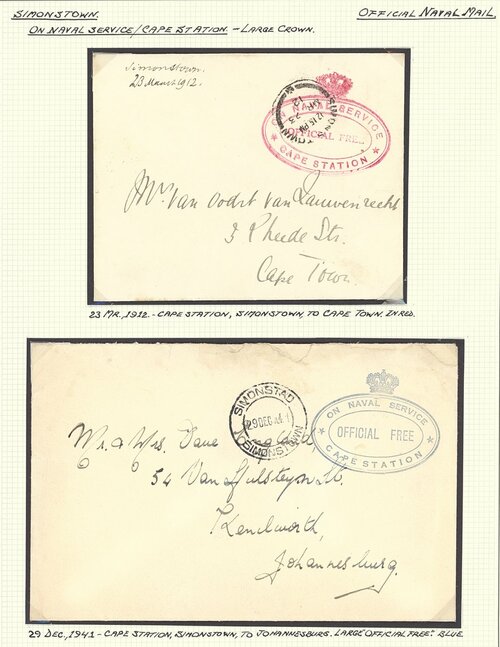 SIMONSTOWN.
OFFICIAL NAVAL MAIL
ON NAVAL SERVICE/CAPE STATION - LARGE CROWN.
Simonstown.
23 March 1912.
ON NAVAL SERVICE
OFFICIAL FREE
CAPE STATION
SIMONSTOWN
MR 23
12.15 PM
12
Mr. Van Oordt Van Lauwenrecht
3 Rheede Str.
Cape Town
23 MR., 1912. - CAPE STATION, SIMONSTOWN, TO CAPE TOWN. IN RED.
SIMONSTAD
29 DEC 41
SIMONSTOWN
ON NAVAL SERVICE
OFFICIAL FREE
CAPE STATION
Mr. & Mrs.
54 Van St.
Kenilworth,
Johannesburg.
29 DEC., 1941 - CAPE STATION, SIMONSTOWN, TO JOHANNESBURG. LARGE "OFFICIAL FREE". BLUE